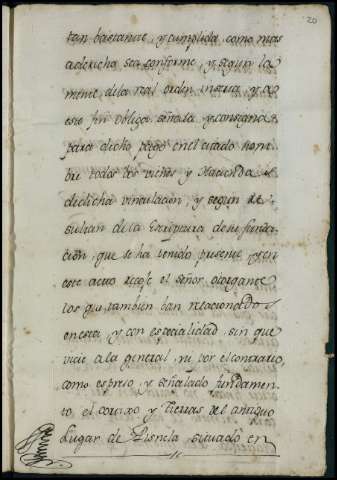 20
tan bastante, y cumplida, como mas
a derecho sea conforme, y segun la
mente de la real orden inserta, y a
este fin obliga, señala, y consigna
para dicho pago en el citado nom-
bre todos los vienes y Hacienda
de dicha vinculacion, y segun re-
sultan de la Escriptura de su funda-
cion, que se ha tenido presente, y en
este acto recoje el señor otorgante
los que tambien ban relacionados
en esta, y con especialidad, sin que
vicie a la general, ni por el contrario,
como espreso, y señalado fundamen-
to, el cortixo y tierras del antiguo
Lugar de situado en